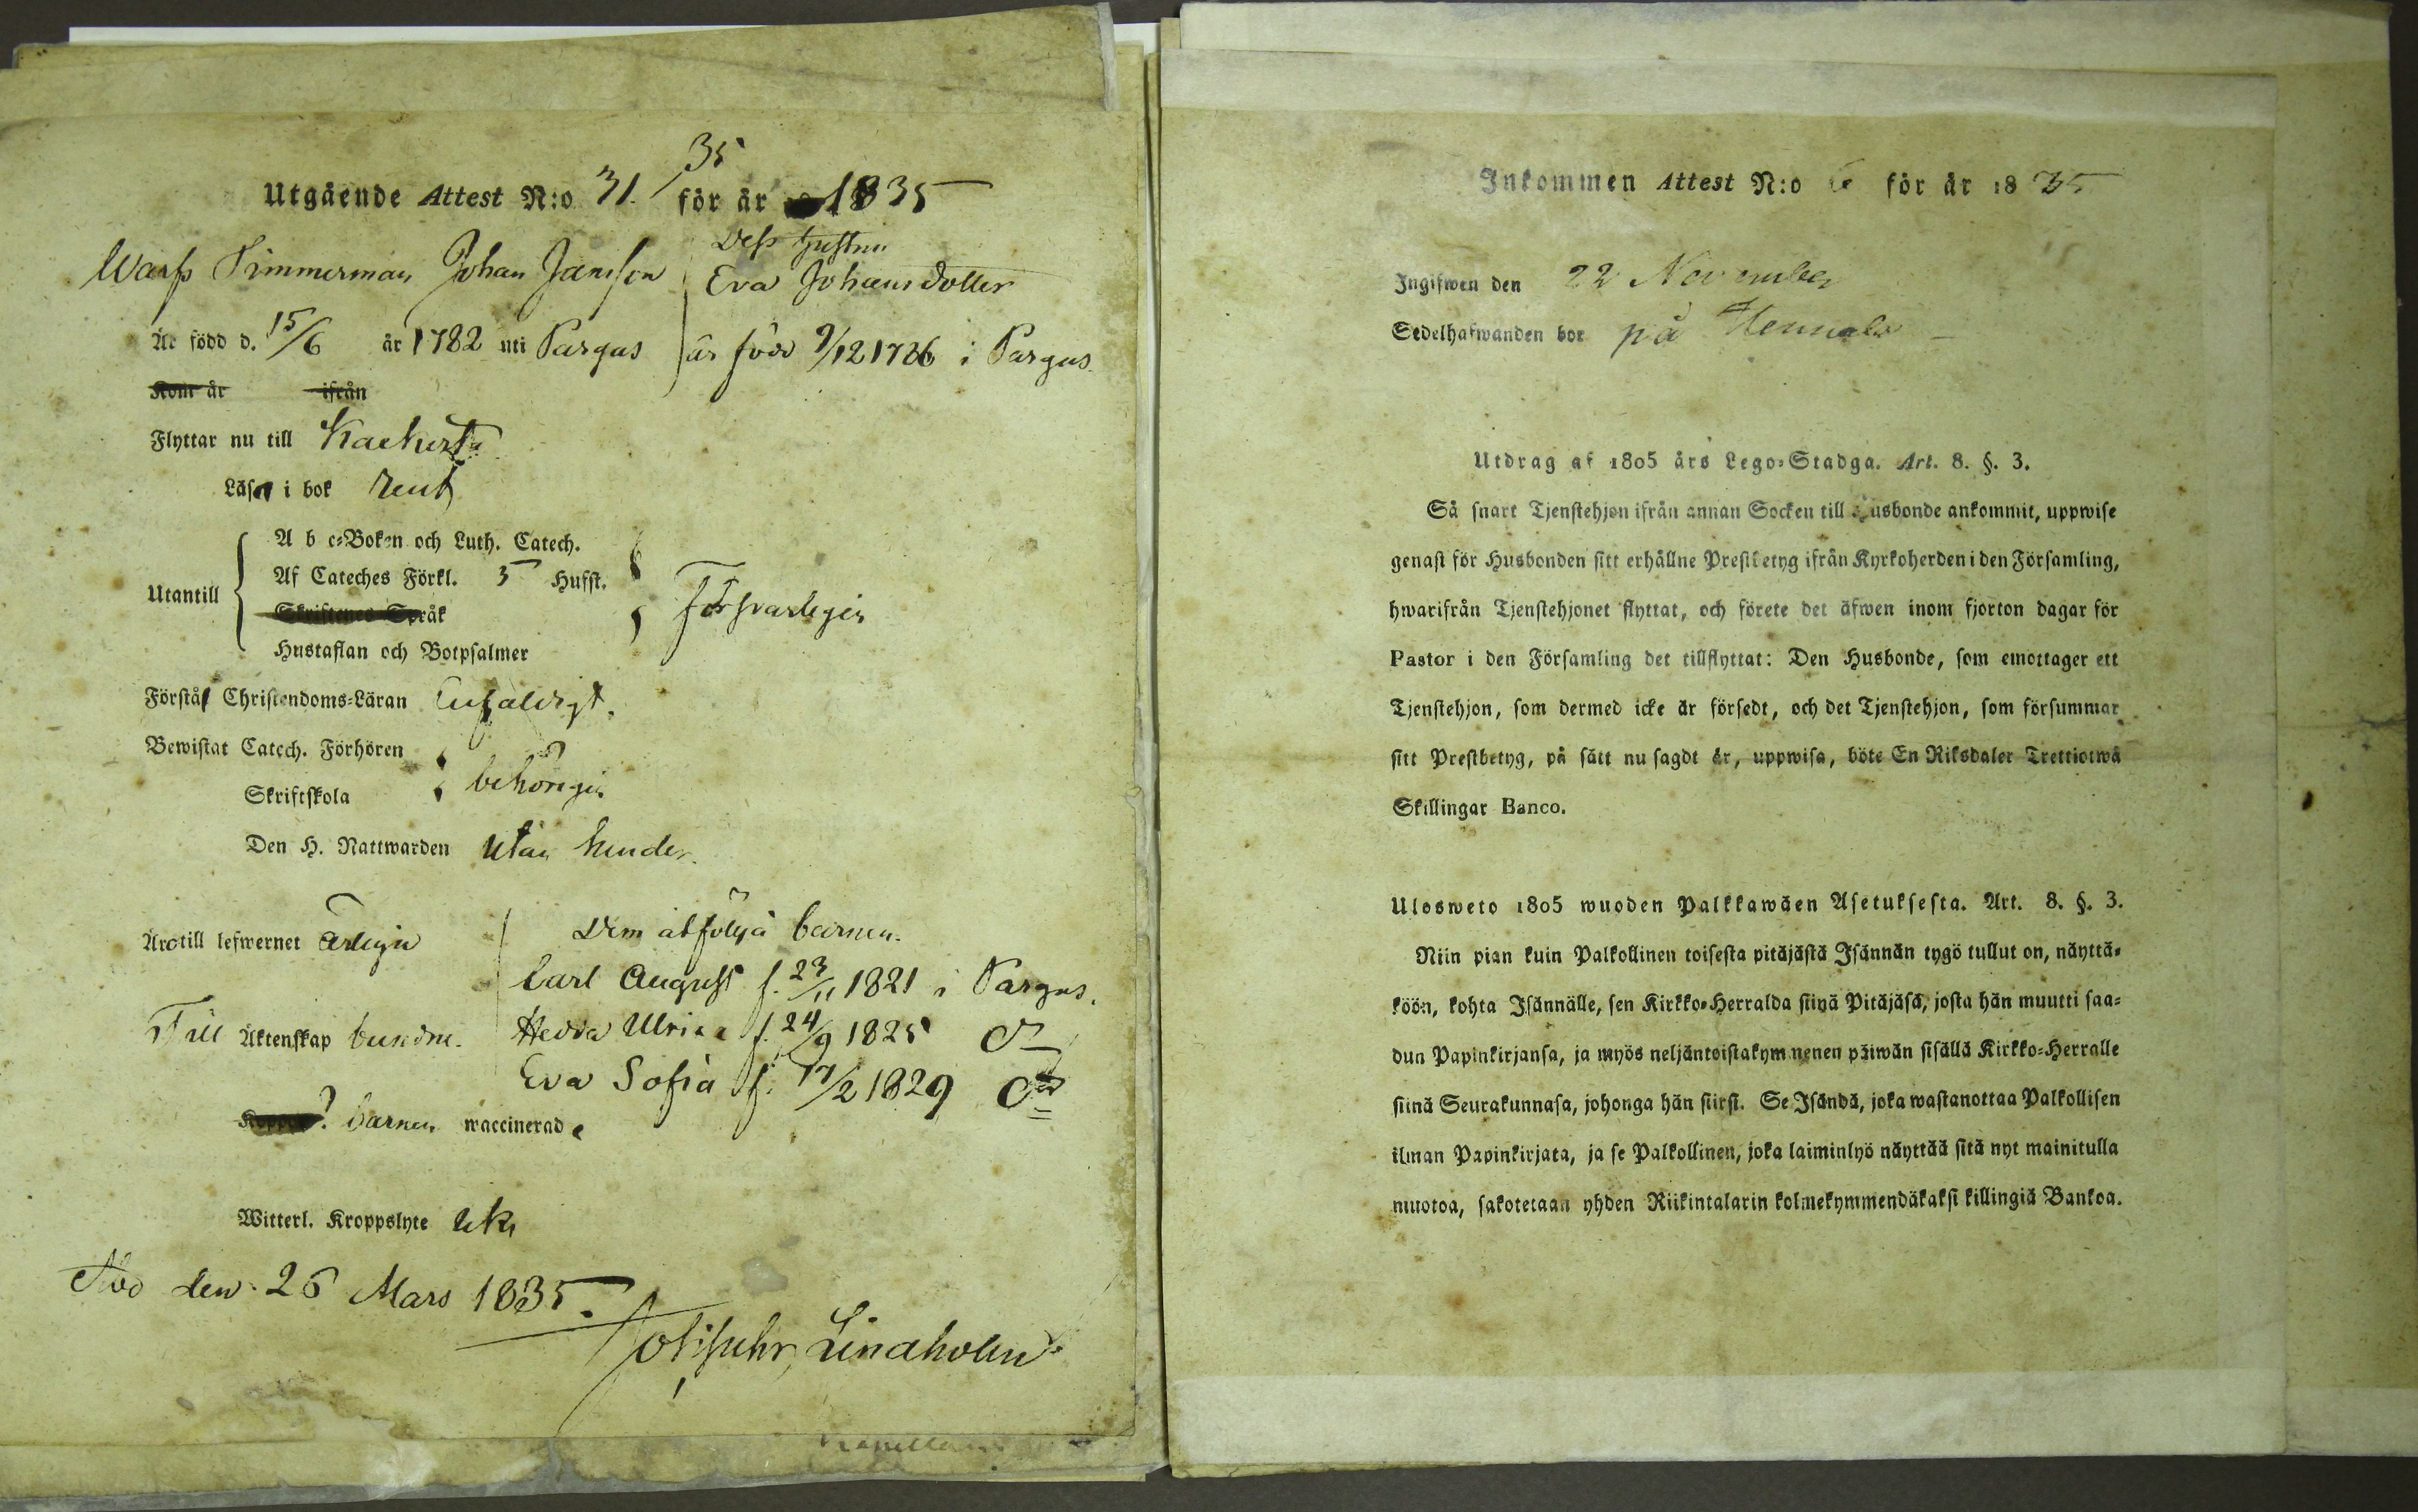 35
Utgående Attest N:o 31. för år 1835
Warfs Timmerman Johan Jansson
Dess hustru
Eva Johansdotter
Är född d. 15/6 år 1782 uti Pargas
är född 9/12 1786 i Pargas
Kom år ifrån
Flyttar nu till Kackerta
Läser i bok rent
Utantill
A b c-Boken och Luth. Catech.
Af Cateches Förkl. 5 Hufst.
Skriftenes Språk
Hustaflan och Botpsalmer
försvarligen
Förstå Christendoms-Läran Enfaldigt.
Bewistat Catech. Förhören
Skriftskola
behörigen
Den H. Nattwarden utan hinder.
Äro till lefwernet ärlige
Dem åtfölja barnen.
Carl August f. 23/11 1821 i Pargas.
Till Äktenskap bundne.
Hedda Ulrica f. 24/9 1825 do
Eva Sofia f. 17/2 1829 do
barnen waccinerade
Witterl. Kroppslyte utan
Åbo den 26 Mars 1835.
Lindholm
Inkommen Attest N:o 6 för år 1835
Ingifwen den 22 November
Sedelhafwanden bor på
Utdrag af 1805 års Lego-Stadga. Art. 8. §. 3.
Så snart Tjenstehjon ifrån annan Socken till Husbonde ankommit, uppwise
genast för Husbonden sitt erhållne Prestbetyg ifrån Kyrkoherden i den Församling,
hwarifrån Tjenstehjonet flyttat, och förete det äfwen inom fjorton dagar för
Pastor i den Församling det tillflyttat: Den Husbonde, som emottager ett
Tjenstehjon, som dermed icke är försedt, och det Tjenstehjon, som försummar
sitt Prestbetyg, på sätt nu sagdt är, uppwisa, böte En Riksdaler Trettiotwå
Skillingar Banco.
Ulosweto 1805 wuoden Palkkawäen Asetuksesta. Art. 8. §. 3.
Niin pian kuin Palkollinen toisesta pitäjästä Isännän tygö tullut on, näyttä-
köön, kohta Isännälle, sen Kirkko-Herralda siinä Pitäjäsä, josta hän muutti saa-
dun Papinkirjansa, ja myös neljäntoistakymmenen päiwän sisällä Kirkko-Herralle
siinä Seurakunnasa, johonga hän siirsi. Se Isändä, joka wastanottaa Palkollisen
ilman Papinkirjata, ja se Palkollinen, joka laiminlyö näyttää sitä nyt mainitulla
muotoa, sakotetaan yhden Riikintalarin kolmekymmendäkaksi killingiä Bankoa.